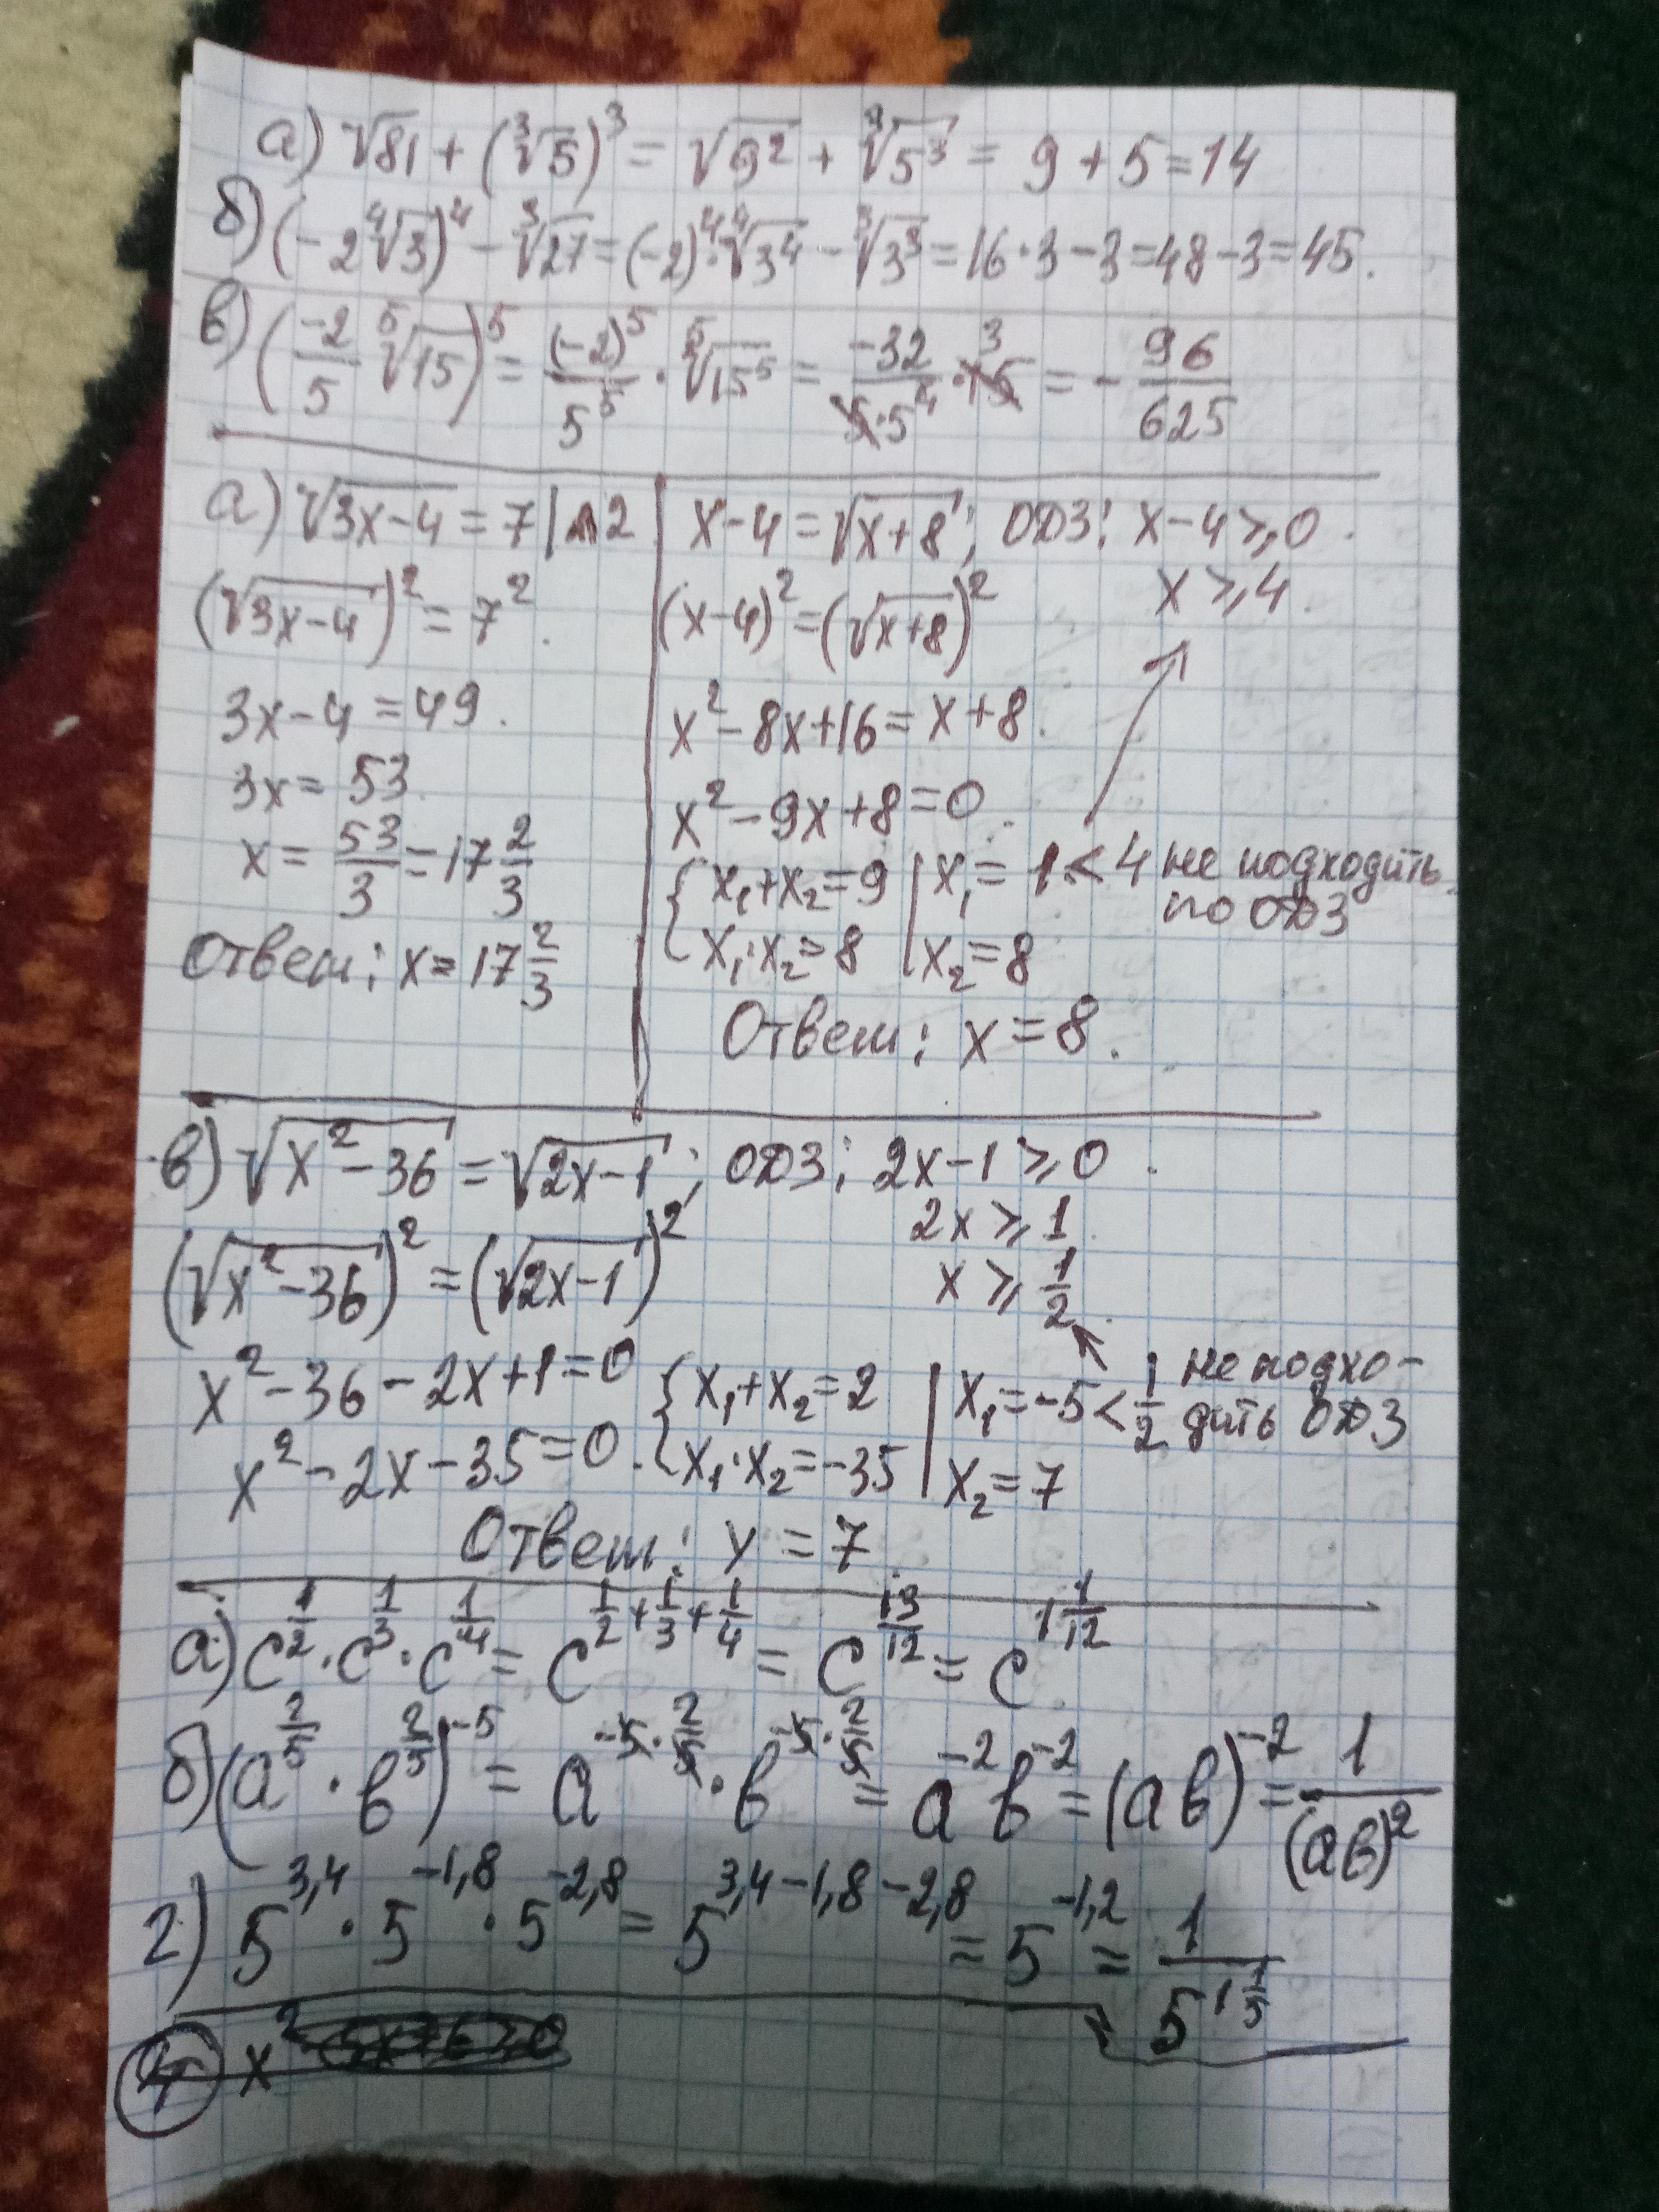 а) √81 + (∛5)³ = √9² + ∛5³ = 9 + 5 = 14
б) (-2 ⁴√3)⁴ - ∛27 = (-2)⁴ · ⁴√3⁴ - ∛3³ = 16 · 3 - 3 = 48 - 3 = 45.
в) (-2/5 ⁵√15)⁵ = (-2)⁵/5⁵ · ⁵√15⁵ = -32/(5·5⁴) · 15 3 = - 96/625
а) √(3x-4) = 7 | ^2
(√(3x-4))² = 7².
3x-4 = 49.
3x = 53.
x = 53/3 = 17 2/3
Ответ: x = 17 2/3
x-4 = √(x+8); ОДЗ: x-4 ⩾ 0.
x ⩾ 4.
(x-4)² = (√(x+8))²
x² - 8x + 16 = x + 8.
x² - 9x + 8 = 0.
{ x₁ + x₂ = 9 | x₁ = 1 < 4 не подходить
по ОДЗ
x₁ · x₂ = 8 | x₂ = 8
Ответ: x = 8.
в) √(x²-36) = √(2x-1); ОДЗ: 2x-1 ⩾ 0.
2x ⩾ 1.
(√(x²-36))² = (√(2x-1))²
x ⩾ 1/2.
x² - 36 - 2x + 1 = 0 { x₁ + x₂ = 2 | x₁ = -5 < 1/2 не подхо-
дить ОДЗ
x² - 2x - 35 = 0. x₁ · x₂ = -35 | x₂ = 7
Ответ: x = 7
а) c^(1/2) · c^(1/3) · c^(1/4) = c^(1/2 + 1/3 + 1/4) = c^(13/12) = c^(1 1/12)
б) (a^(2/5) · b^(2/5))^(-5) = a^(-5 · 2/5) · b^(-5 · 2/5) = a^(-2) b^(-2) = (ab)^(-2) = 1/(ab)²
г) 5^(3,4) · 5^(-1,8) · 5^(-2,8) = 5^(3,4 - 1,8 - 2,8) = 5^(-1,2) = 1/5^(1 1/5)
4 x²